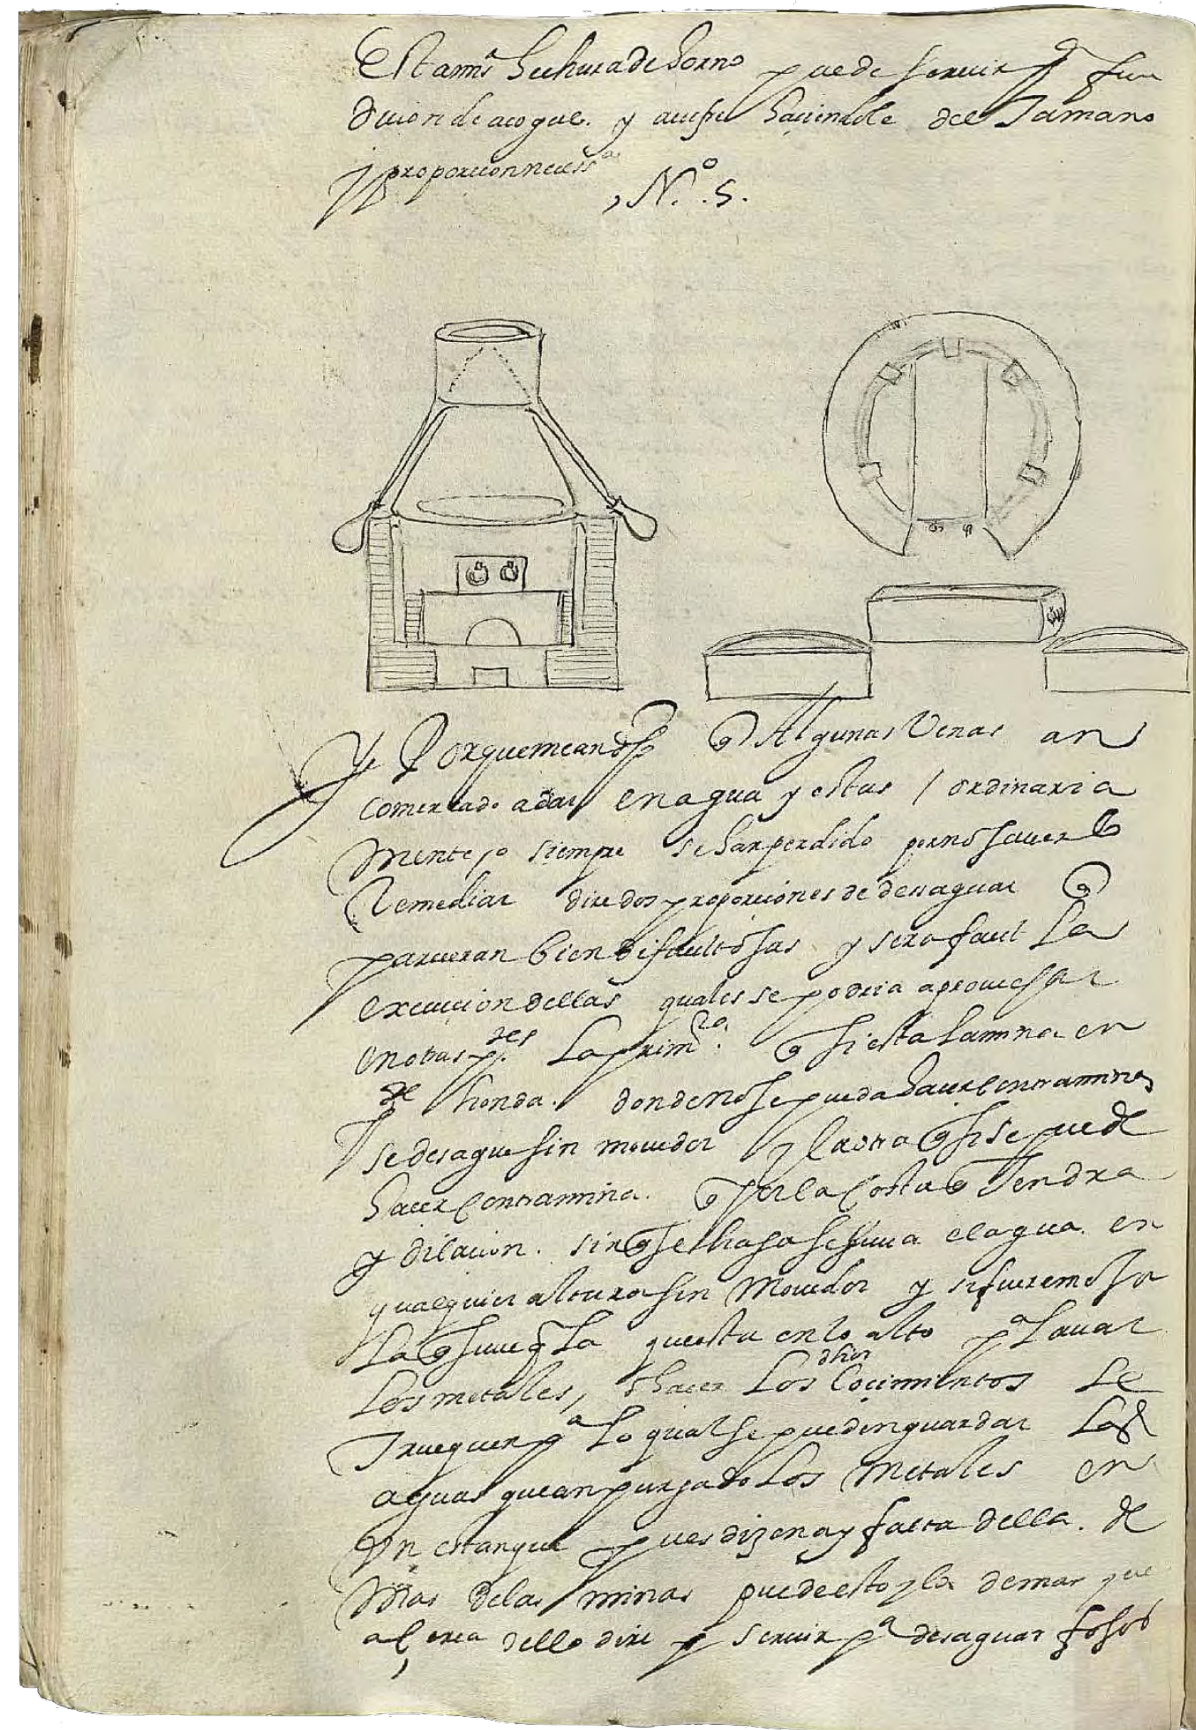 Esta mis.ª hechura de horno puede seruir p.ª fun
dicion de açogue. y açufre haciendole del Tamano
y proporcion necess.ª
, N.º .5.
Y Porque me an d.ho q Algunas Venas an
comencado a dar en agua y estas / ordinaria
mente, o siempre se han perdido por no sauerlo
Remediar dire dos proporciones de desaguar q
pareceran bien dificultosas y sera facil La
execucion dellas quales se podria aprouechar
en otras p.tes La prim.ra q si esta la mina en
honda. donde no se pueda hacer contramina
se desague sin mouedor y la otra q si se puede
hacer contramina. q por la costa q Tendra
y dilacion. sin q se haga se suua el agua. en
qualquier altura sin Mouedor y si fueremos
La q suue q La questa en lo alto p.ª Lauar
Los metales, y hacer Los dhos Cocimientos se
Truequen p.ª Lo qual se pueden guardar Las
aguas que an purgado Los Metales en
Vn estanque pues dizen ay falta della. de
Mas de las minas puede esto y lo demas que
a cerca dello dire seruir p.ª desaguar fosos